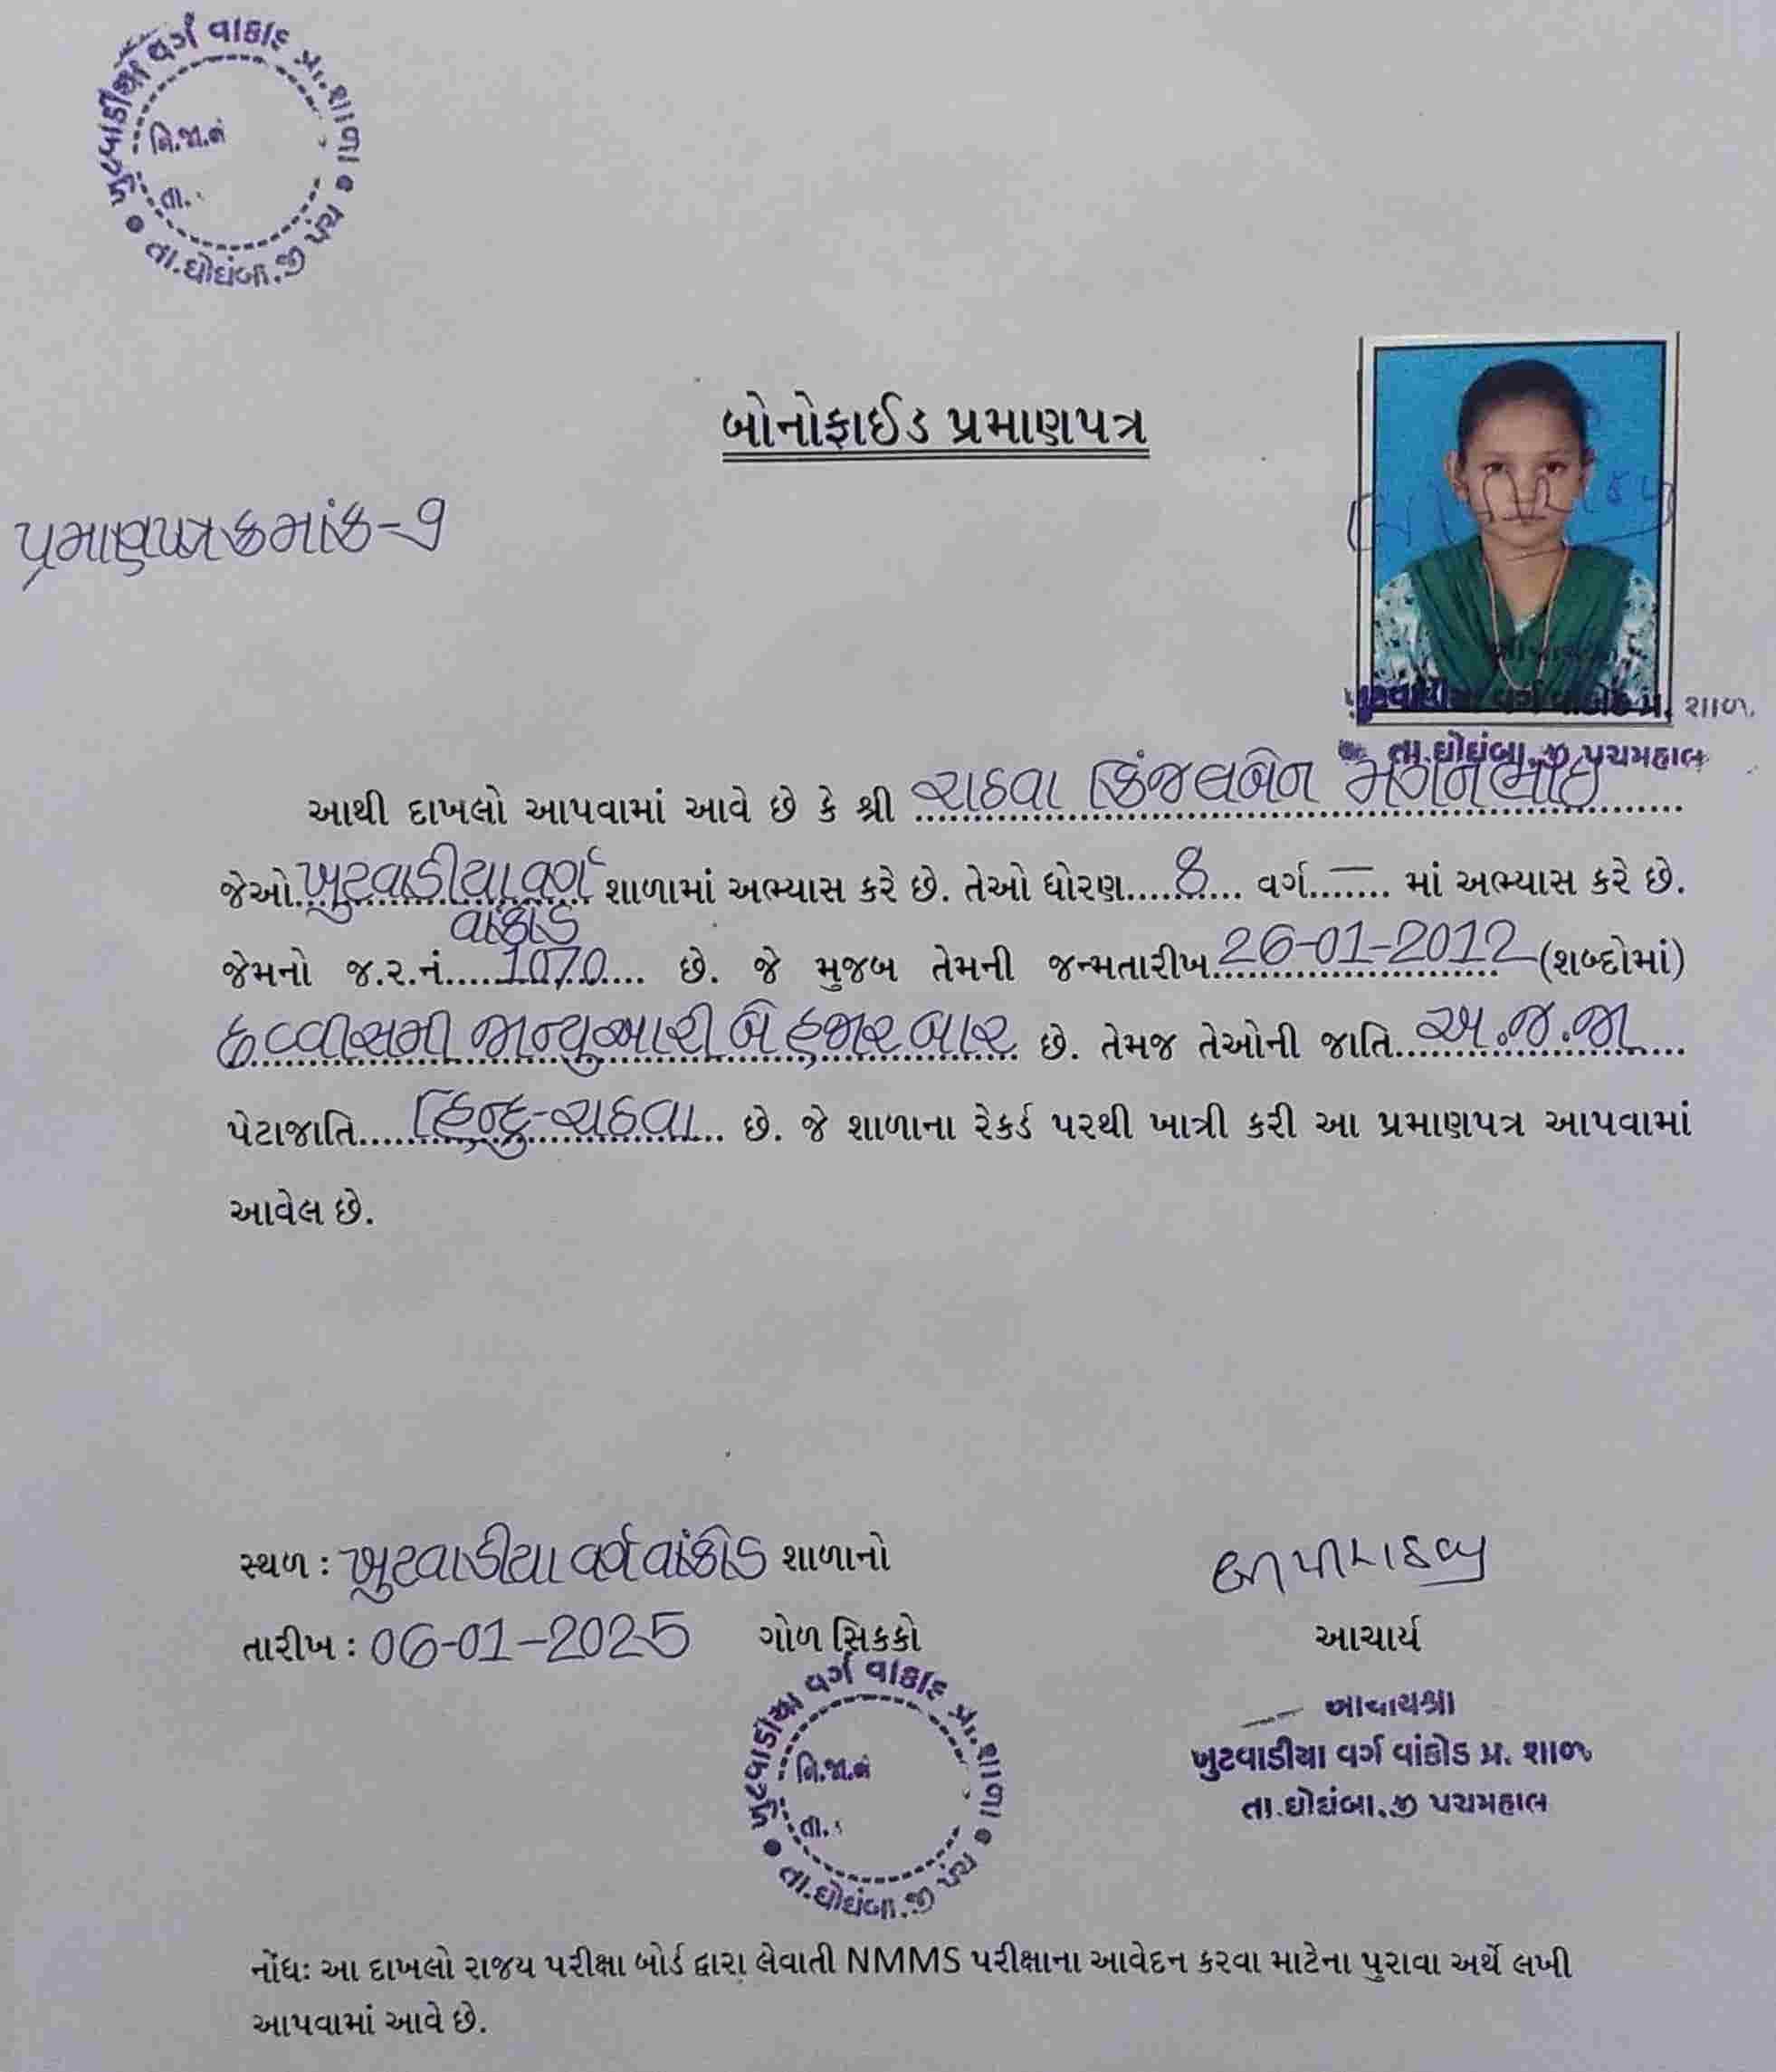 ખુટવાડીયા વર્ગ વાંકોડ પ્રા. શાળા
નિ.જા.નં
તા.
તા.ઘોઘંબા.જી પંચ
બોનોફાઈડ પ્રમાણપત્ર
પ્રમાણપત્ર ક્રમાંક-૧
ખુટવાડીયા વર્ગ વાંકોડ પ્રા. શાળા
તા.ઘોઘંબા.જી પચમહાલ
આથી દાખલો આપવામાં આવે છે કે શ્રી રાઠવા કિંજલબેન મગનભાઈ
જેઓ ખુટવાડીયા વર્ગ શાળામાં અભ્યાસ કરે છે. તેઓ ધોરણ....8... વર્ગ...–.... માં અભ્યાસ કરે છે.
વાંકોડ
જેમનો જ.ર.નં.....1070.... છે. જે મુજબ તેમની જન્મતારીખ 26-01-2012 (શબ્દોમાં)
છવ્વીસમી જાન્યુઆરી બે હજાર બાર છે. તેમજ તેઓની જાતિ અ.જ.જા
પેટાજાતિ.... હિન્દુ-રાઠવા... છે. જે શાળાના રેકર્ડ પરથી ખાત્રી કરી આ પ્રમાણપત્ર આપવામાં
આવેલ છે.
સ્થળ : ખુટવાડીયા વર્ગ વાંકોડ શાળાનો
તારીખ : 06-01-2025 ગોળ સિકકો
આચાર્ય
આચાર્યશ્રી
ખુટવાડીયા વર્ગ વાંકોડ પ્રા. શાળા
તા.ઘોઘંબા.જી પચમહાલ
ખુટવાડીયા વર્ગ વાંકોડ પ્રા. શાળા
નિ.જા.નં
તા.
તા.ઘોઘંબા.જી પંચ
નોંધઃ આ દાખલો રાજય પરીક્ષા બોર્ડ દ્વારા લેવાતી NMMS પરીક્ષાના આવેદન કરવા માટેના પુરાવા અર્થે લખી
આપવામાં આવે છે.